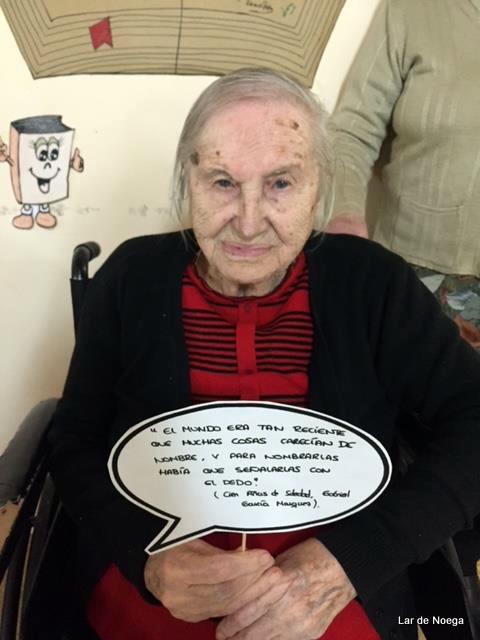 " EL MUNDO ERA TAN RECIENTE
QUE MUCHAS COSAS CARECÍAN DE
NOMBRE, Y PARA NOMBRARLAS
HABÍA QUE SEÑALARLAS CON
EL DEDO".
( Cien Años de Soledad, Gabriel
García Marquez).
Lar de Noega